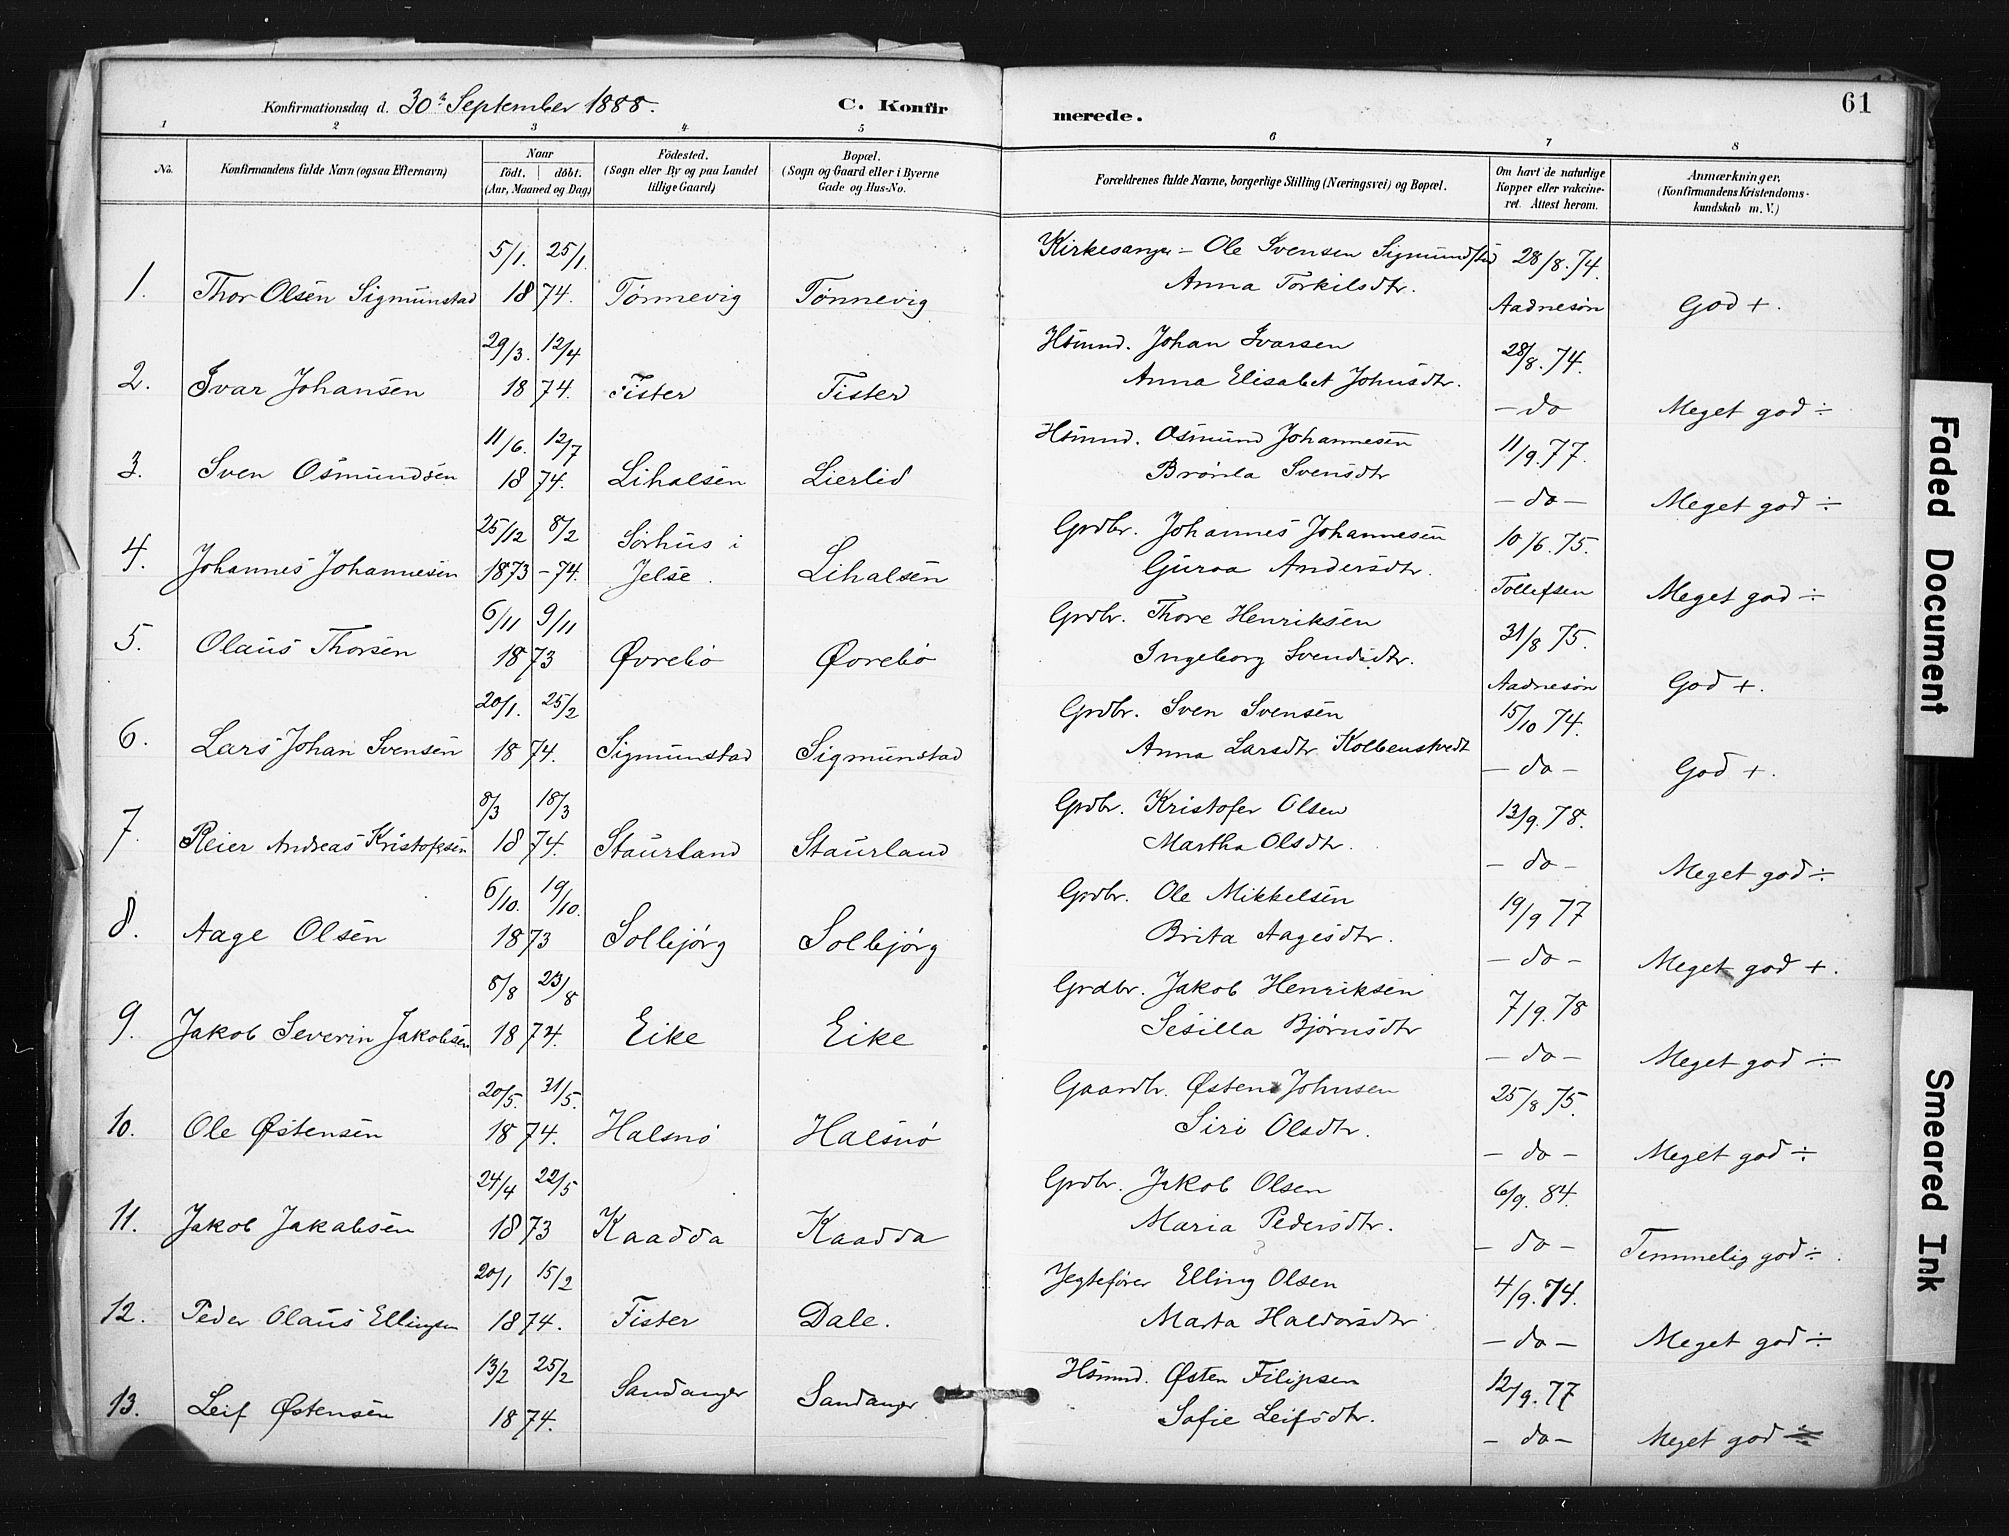 Konfirmationsdag d. 30te September 1888. C. Konfirmerede. 61
1 2 3 4 5 6 7 8
No. Konfirmandens fulde Navn (ogsaa Efternavn) Naar født. døbt. (Aar, Maaned og Dag) Fødested. (Sogn eller By og paa Landet tillige Gaard) Bopæl. (Sogn og Gaard eller i Byerne Gade og Hus-No. Forældrenes fulde Navne, borgerlige Stilling (Næringsvei) og Bopæl. Om havt de naturlige Kopper eller vakcineret. Attest herom. Anmærkninger. (Konfirmandens Kristendomskundskab m. V.)
5/1. 25/1. Kirkesanger – Ole Svensen Sigmundstad 28/8. 74.
1. Thor Olsen Sigmunstad 1874. Tønnevig Tønnevig Anna Torkilsdtr. Aadnesøn God +.
29/3. 12/4 Hsmnd. Johan Ivarsen 28/8. 74.
2. Ivar Johansen 1874. Fister Fister Anna Elisabet Johnsdtr. – do Meget god ÷
11/6. 12/7 Hsmnd. Osmund Johannesen 11/9. 77.
3. Sven Osmundsen 1874. Lihalsen Lierlid Svensdtr – do – Meget god ÷
25/12 8/2 Sørhus i Grdbr. Johannes Johannesen 10/6. 75.
4. Johannes Johannesen 1873 – 74. Jelse. Lihalsen Guroa Andersdtr. Tollefsen Meget god ÷
6/11 9/11 Grdbr. Thore Henriksen 31/8 75.
5. Olaus Thorsen 1873 Øvrebø Øvrebø Ingeborg Svendsdtr. Aadnesøn God +.
20/1. 25/2 Grdbr. Sven Svensen 15/10 74.
6. Lars Johan Svensen 1874. Sigmunstad Sigmunstad Anna Larsdtr Kolbenstvedt – do – God +.
8/3 18/3 Grdbr. Kristofer Olsen 13/9. 78.
7. Reier Andreas Kristofersen 1874. Staurland Staurland Martha Olsdtr. – do – Meget god ÷
6/10. 19/10. Grdbr. Ole Mikkelsen 19/9 77
8. Aage Olsen 1873 Solbjørg Solbjørg Brita Aagesdtr. – do – Meget god +.
8/8 23/8 Grdbr. Jakob Henriksen 7/9. 78
9. Jakob Severin Jakobsen 1874. Eike Eike Sesilla Bjørnsdtr – do – Meget god ÷
20/5. 31/5. Gaardbr. Østen Johnsen 25/8 75.
10. Ole Østensen 1874. Halsnø Halsnø Siri Olsdtr. – do – Meget god ÷
24/4 22/5 Grdbr. Jakob Olsen 6/9. 84.
11. Jakob Jakobsen 1873 Kaadda Kaadda Maria Pedersdtr. – do – Temmelig god ÷.
20/1 15/2 Jegtefører Elling Olsen 4/9. 74.
12. Peder Olaus Ellingsen 1874. Fister Dale. Marta Haldorsdtr – do – Meget god ÷
13/2 25/2 Hsmnd. Østen Filipsen 12/9. 77
13. Leif Østensen 1874. Sandanger Sandanger Sofie Leifsdtr. – do – Meget god
Faded Document
Smeared Ink